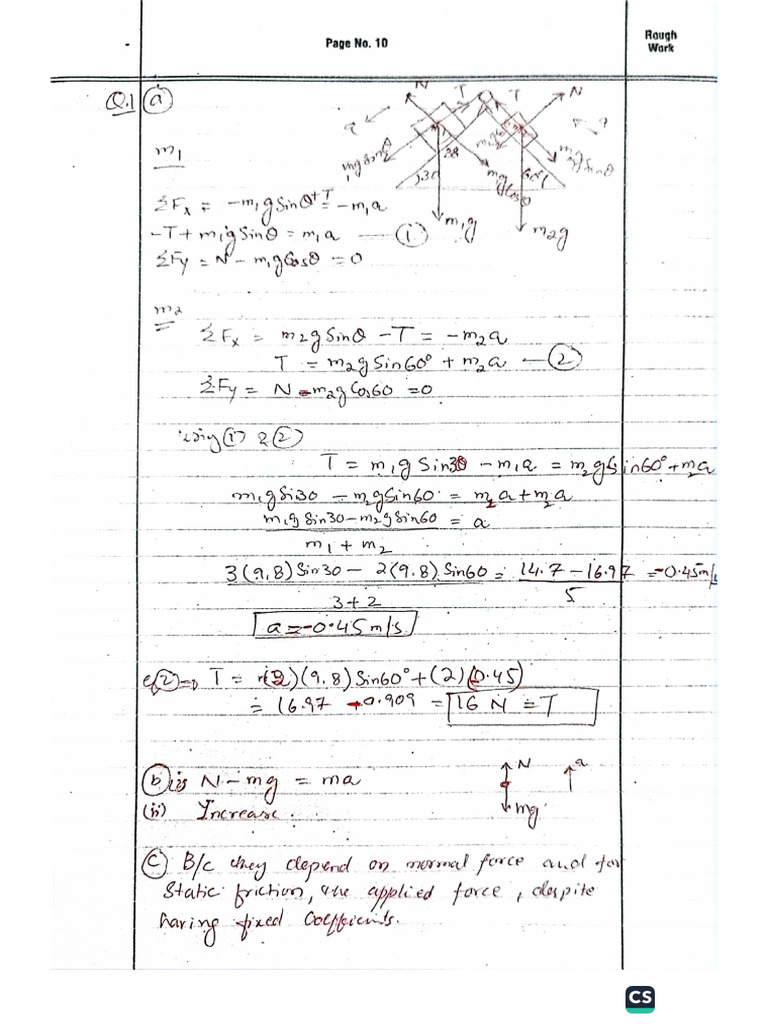 Page No. 10
Rough
Work
Q.1 (a)
N T T N
a a
m₁gsinθ 30 30 mgcosθ m₁g 60° m₂gsinθ m₂g
m₁
ΣFx = -m₁gSinθ+T = -m₁a
-T + m₁gSinθ = m₁a — (1)
ΣFy = N - m₁gCosθ = 0
m₂
ΣFx = m₂gSinθ - T = -m₂a
T = m₂gSin60° + m₂a — (2)
ΣFy = N - m₂gCos60 = 0
using (1) & (2)
T = m₁gSin30 - m₁a = m₂gSin60° + m₂a
m₁gSin30 - m₂gSin60 = m₂a + m₂a
m₁gSin30 - m₂gSin60 = a
m₁ + m₂
3(9.8)Sin30 - 2(9.8)Sin60 = 14.7 - 16.97 = -0.45m/
3+2 5
a = -0.45m/s
eq(2) => T = (2)(9.8)Sin60° + (2)(0.45)
= 16.97 -0.909 = 16 N = T
(b) (i) N - mg = ma
N a
mg
(ii) Increase.
(c) B/c they depend on normal force and for
Static friction, the applied force, despite
having fixed Coefficients.
CS